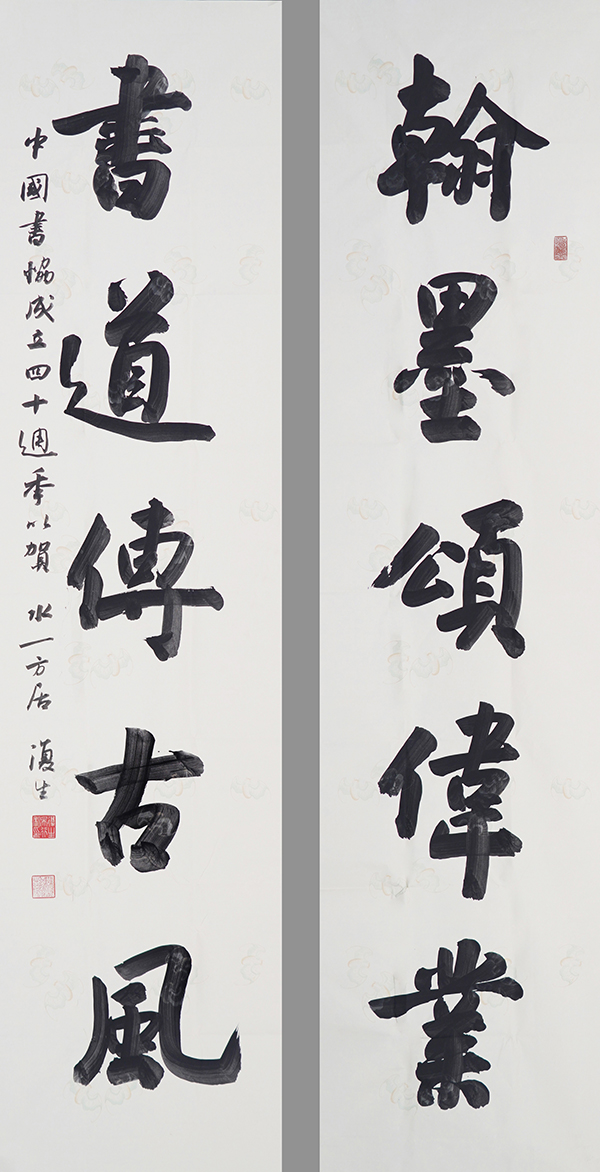 翰墨頌偉業
書道傳古風
中國書協成立四十週年以賀 水一方居 復生